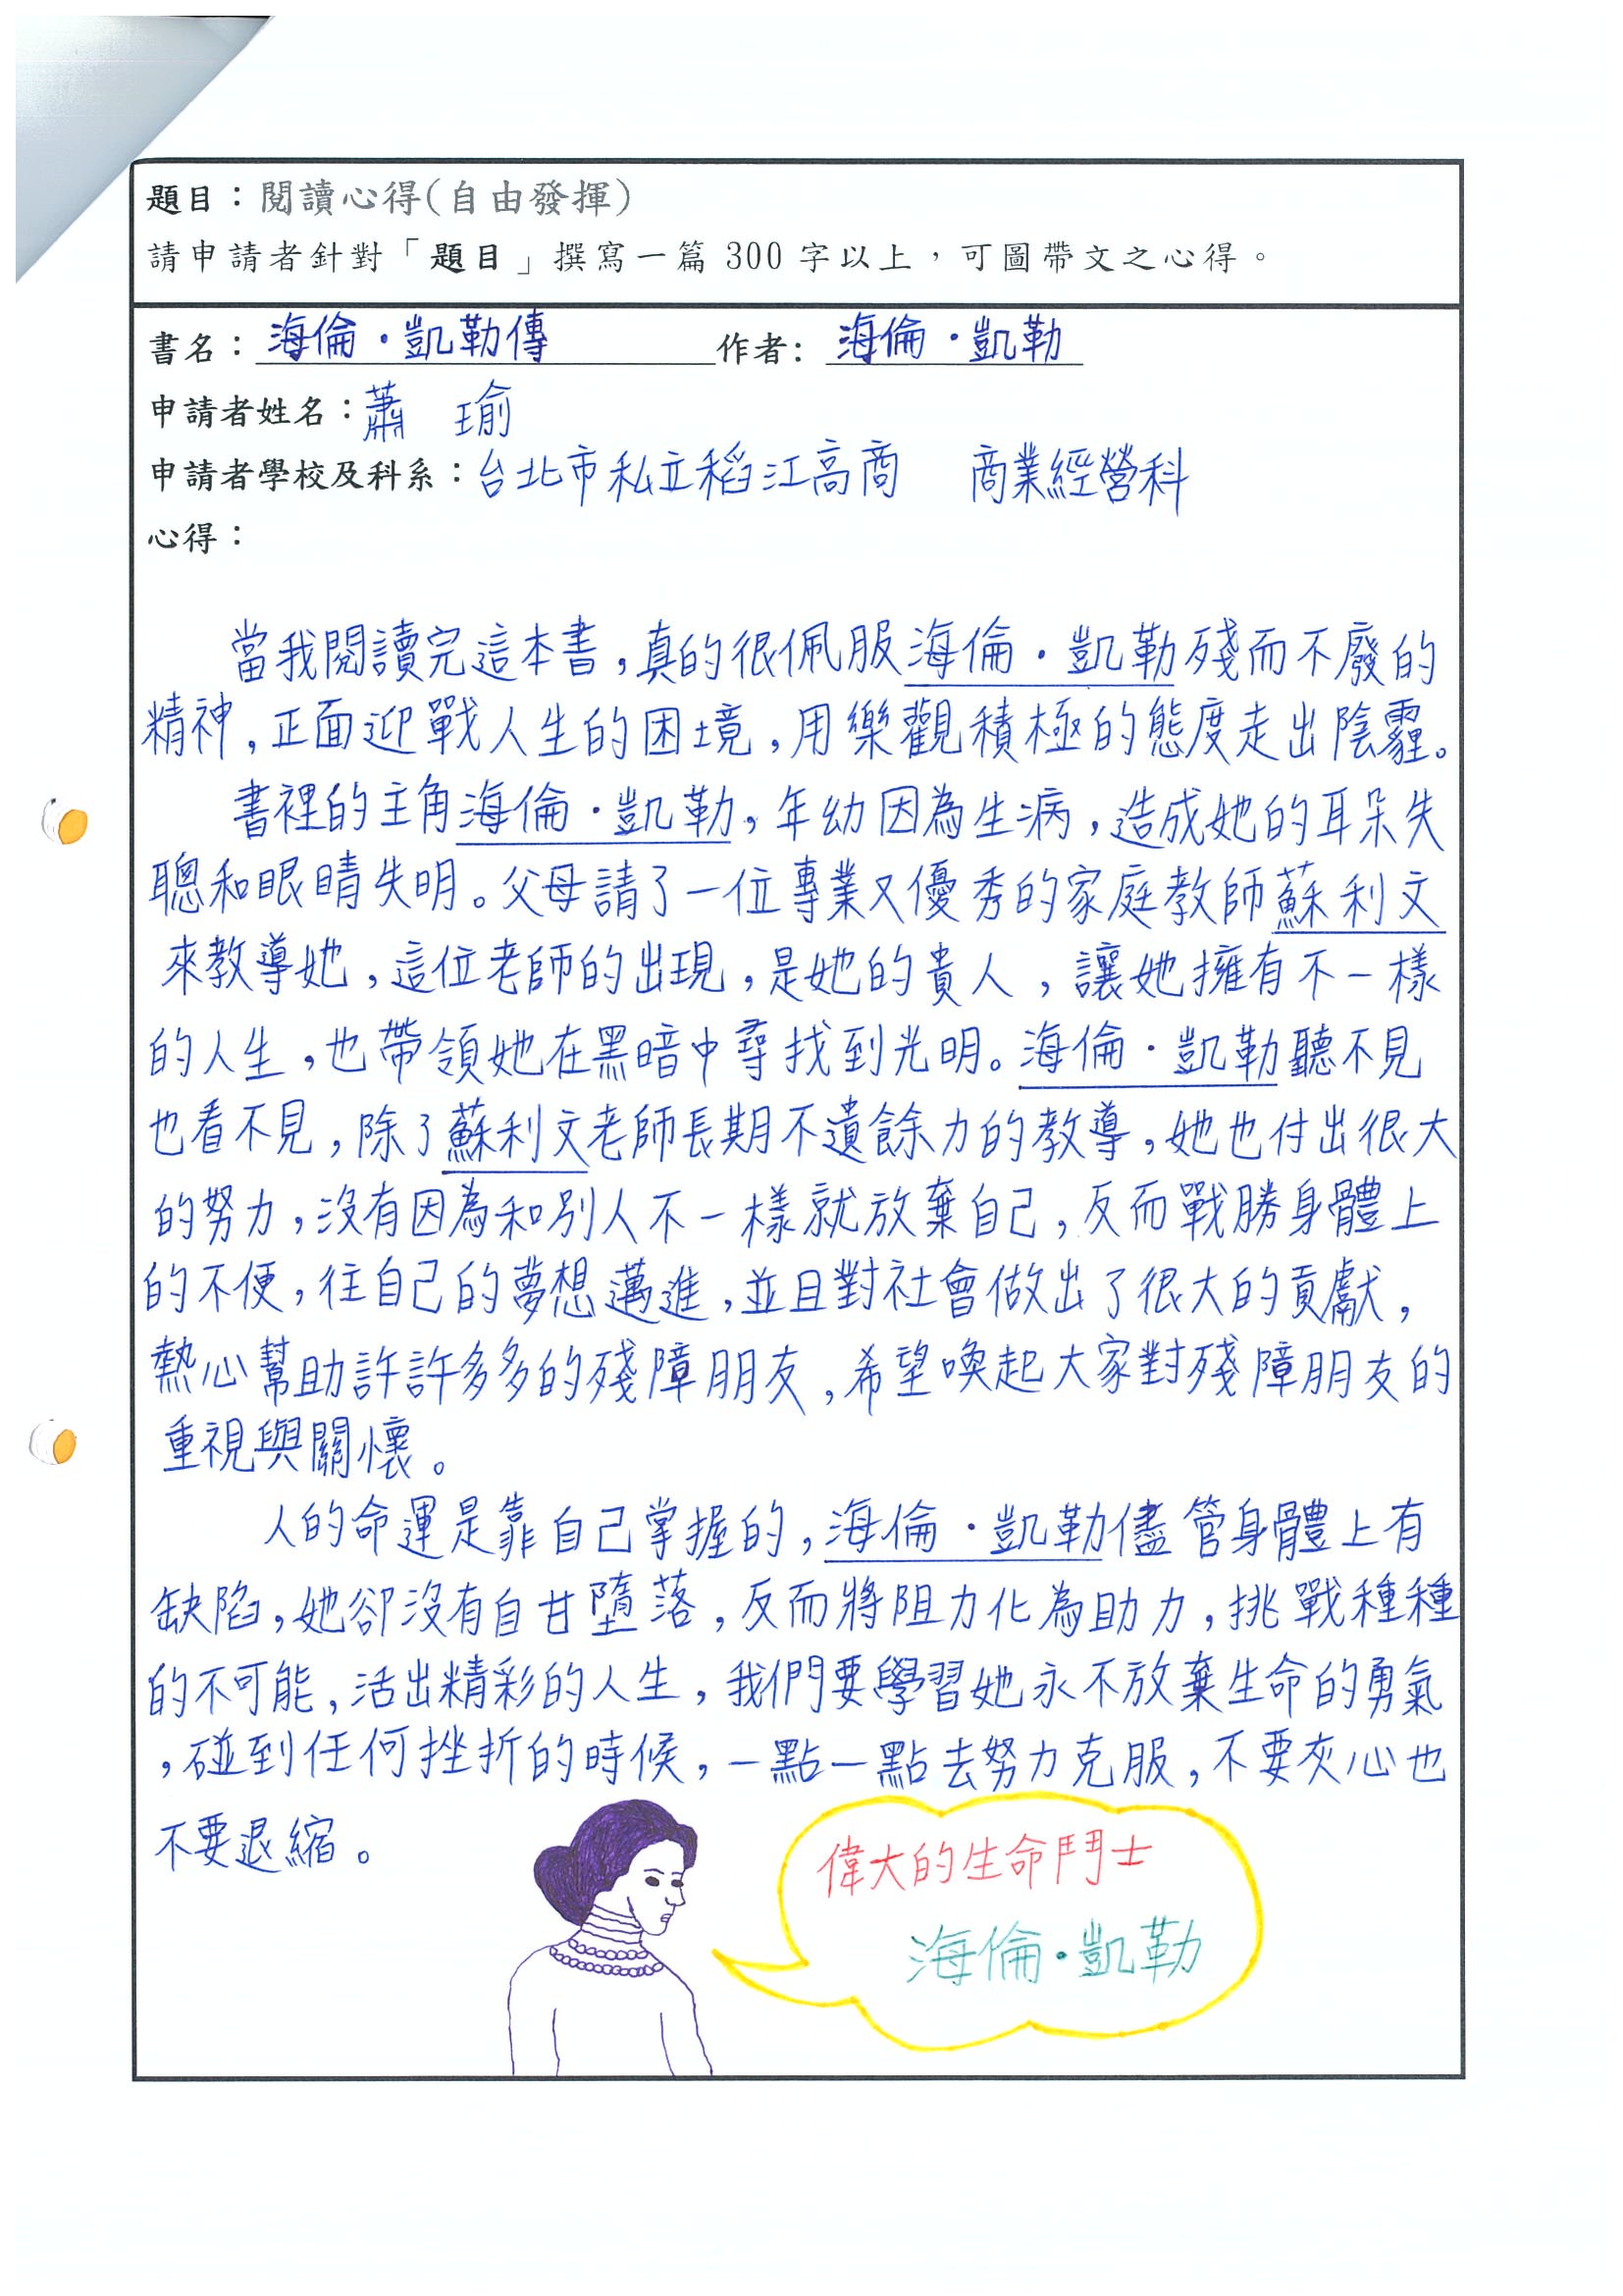 題目：閱讀心得(自由發揮)
請申請者針對「題目」撰寫一篇 300 字以上，可圖帶文之心得。
書名：海倫・凱勒傳 作者：海倫・凱勒
申請者姓名：蕭 瑜
申請者學校及科系：台北市私立稻江高商 商業經營科
心得：
當我閱讀完這本書，真的很佩服海倫・凱勒殘而不廢的
精神，正面迎戰人生的困境，用樂觀積極的態度走出陰霾。
書裡的主角海倫・凱勒，年幼因為生病，造成她的耳朵失
聰和眼睛失明。父母請了一位專業又優秀的家庭教師蘇利文
來教導她，這位老師的出現，是她的貴人，讓她擁有不一樣
的人生，也帶領她在黑暗中尋找到光明。海倫・凱勒聽不見
也看不見，除了蘇利文老師長期不遺餘力的教導，她也付出很大
的努力，沒有因為和別人不一樣就放棄自己，反而戰勝身體上
的不便，往自己的夢想邁進，並且對社會做出了很大的貢獻，
熱心幫助許許多多的殘障朋友，希望喚起大家對殘障朋友的
重視與關懷。
人的命運是靠自己掌握的，海倫・凱勒儘管身體上有
缺陷，她卻沒有自甘墮落，反而將阻力化為助力，挑戰種種
的不可能，活出精彩的人生，我們要學習她永不放棄生命的勇氣
，碰到任何挫折的時候，一點一點去努力克服，不要灰心也
不要退縮。
偉大的生命鬥士
海倫・凱勒